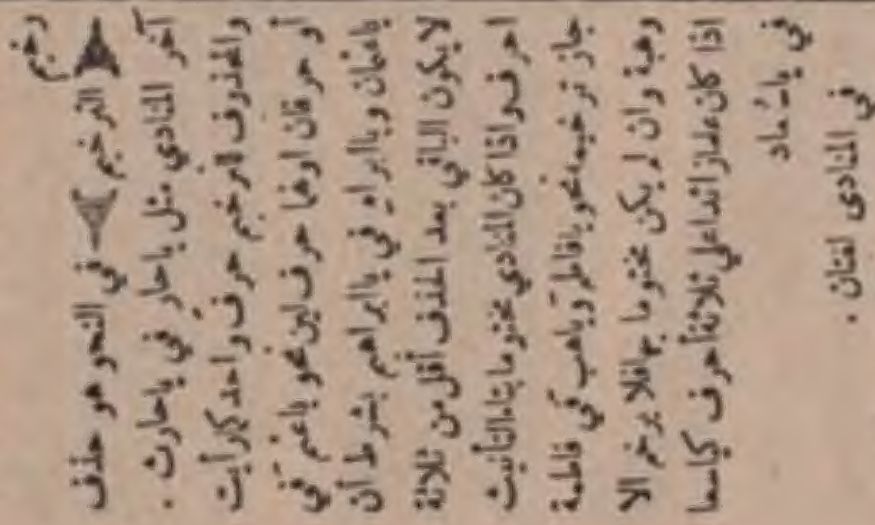 رخيم
﴿ الترخيم ﴾- في النحو هو حذف
آخر المنادي مثل ياحار في ياحارث .
والمحذوف للترخيم حرف واحد كما رأيت
أو حرفان اولهما حرف لين نحو ياعثم في
ياعثمان وياابراه في ياابراهيم بشرط أن
لا يكون الباقي بعد الحذف أقل من ثلاثة
احرف واذا كان المنادي مختوما بتاء التأنيث
جاز ترخيمه نحو يافاطم وياهب في فاطمة
وهبة وان لم يكن مختوما بها فلا يرخم الا
اذا كان علما زائدا على ثلاثة أحرف كياسعا
في ياسعاد
في المنادى لغتان .